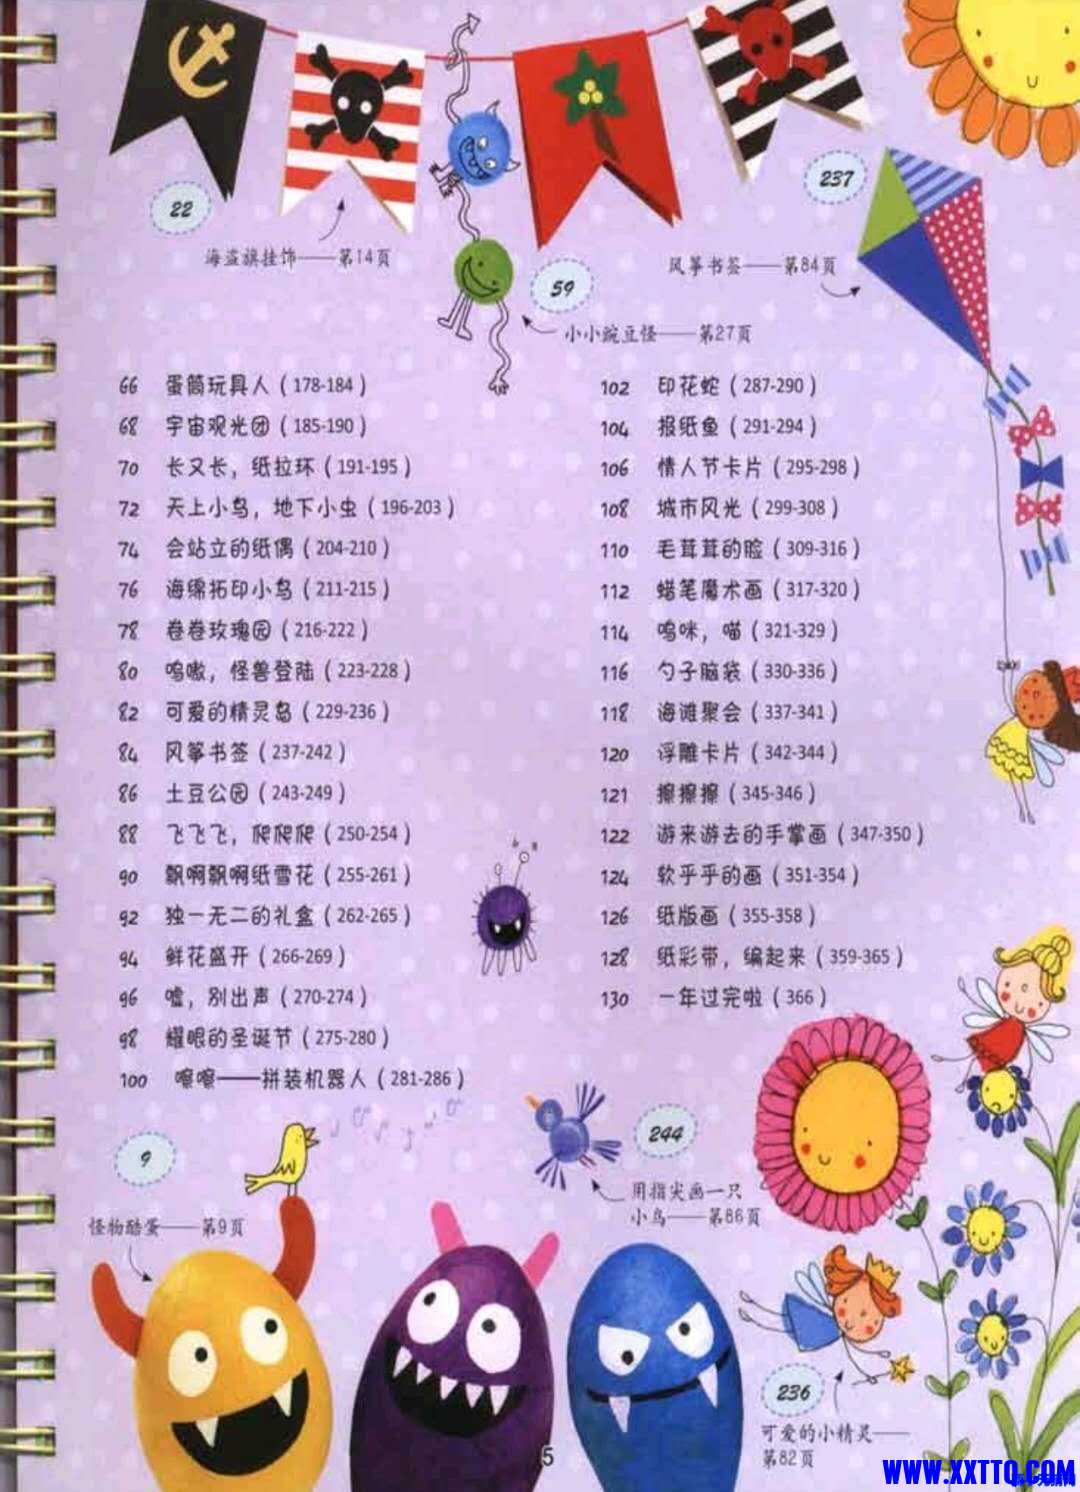 22
237
海盗旗挂饰——第14页
59
风筝书签——第84页
小小豌豆怪——第27页
66 蛋筒玩具人（178-184）
68 宇宙观光团（185-190）
70 长又长，纸拉环（191-195）
72 天上小鸟，地下小虫（196-203）
74 会站立的纸偶（204-210）
76 海绵拓印小鸟（211-215）
78 卷卷玫瑰园（216-222）
80 呜嗷，怪兽登陆（223-228）
82 可爱的精灵岛（229-236）
84 风筝书签（237-242）
86 土豆公园（243-249）
88 飞飞飞，爬爬爬（250-254）
90 飘啊飘啊纸雪花（255-261）
92 独一无二的礼盒（262-265）
94 鲜花盛开（266-269）
96 嘘，别出声（270-274）
98 耀眼的圣诞节（275-280）
100 嚓嚓——拼装机器人（281-286）
102 印花蛇（287-290）
104 报纸鱼（291-294）
106 情人节卡片（295-298）
108 城市风光（299-308）
110 毛茸茸的脸（309-316）
112 蜡笔魔术画（317-320）
114 呜咪，喵（321-329）
116 勺子脑袋（330-336）
118 海滩聚会（337-341）
120 浮雕卡片（342-344）
121 擦擦擦（345-346）
122 游来游去的手掌画（347-350）
124 软乎乎的画（351-354）
126 纸版画（355-358）
128 纸彩带，编起来（359-365）
130 一年过完啦（366）
9
244
怪物酷蛋——第9页
用指尖画一只
小鸟——第86页
236
可爱的小精灵——
第82页
5
WWW.XXTTQ.COM